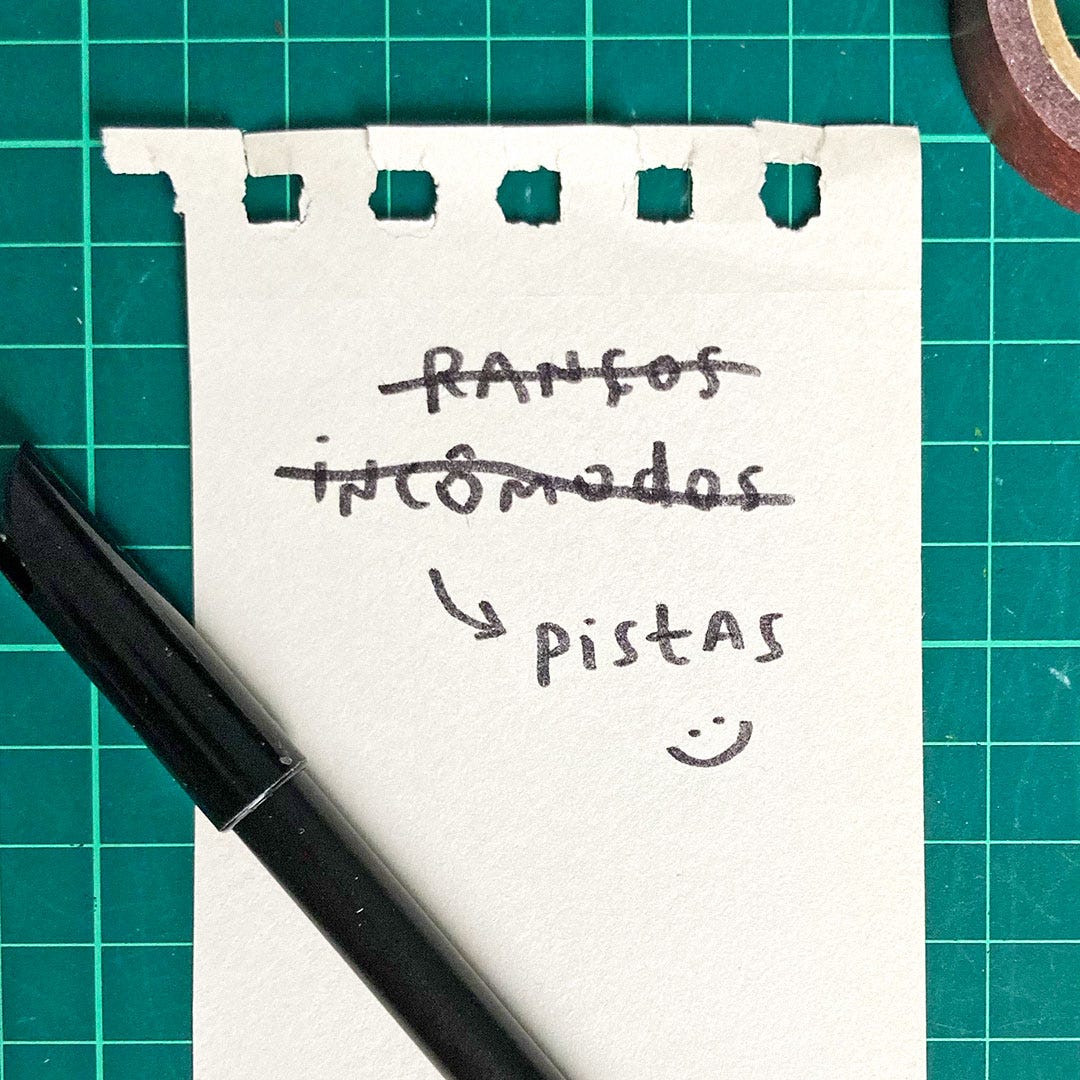 RANÇOS
iNCÔmodos
pistAs